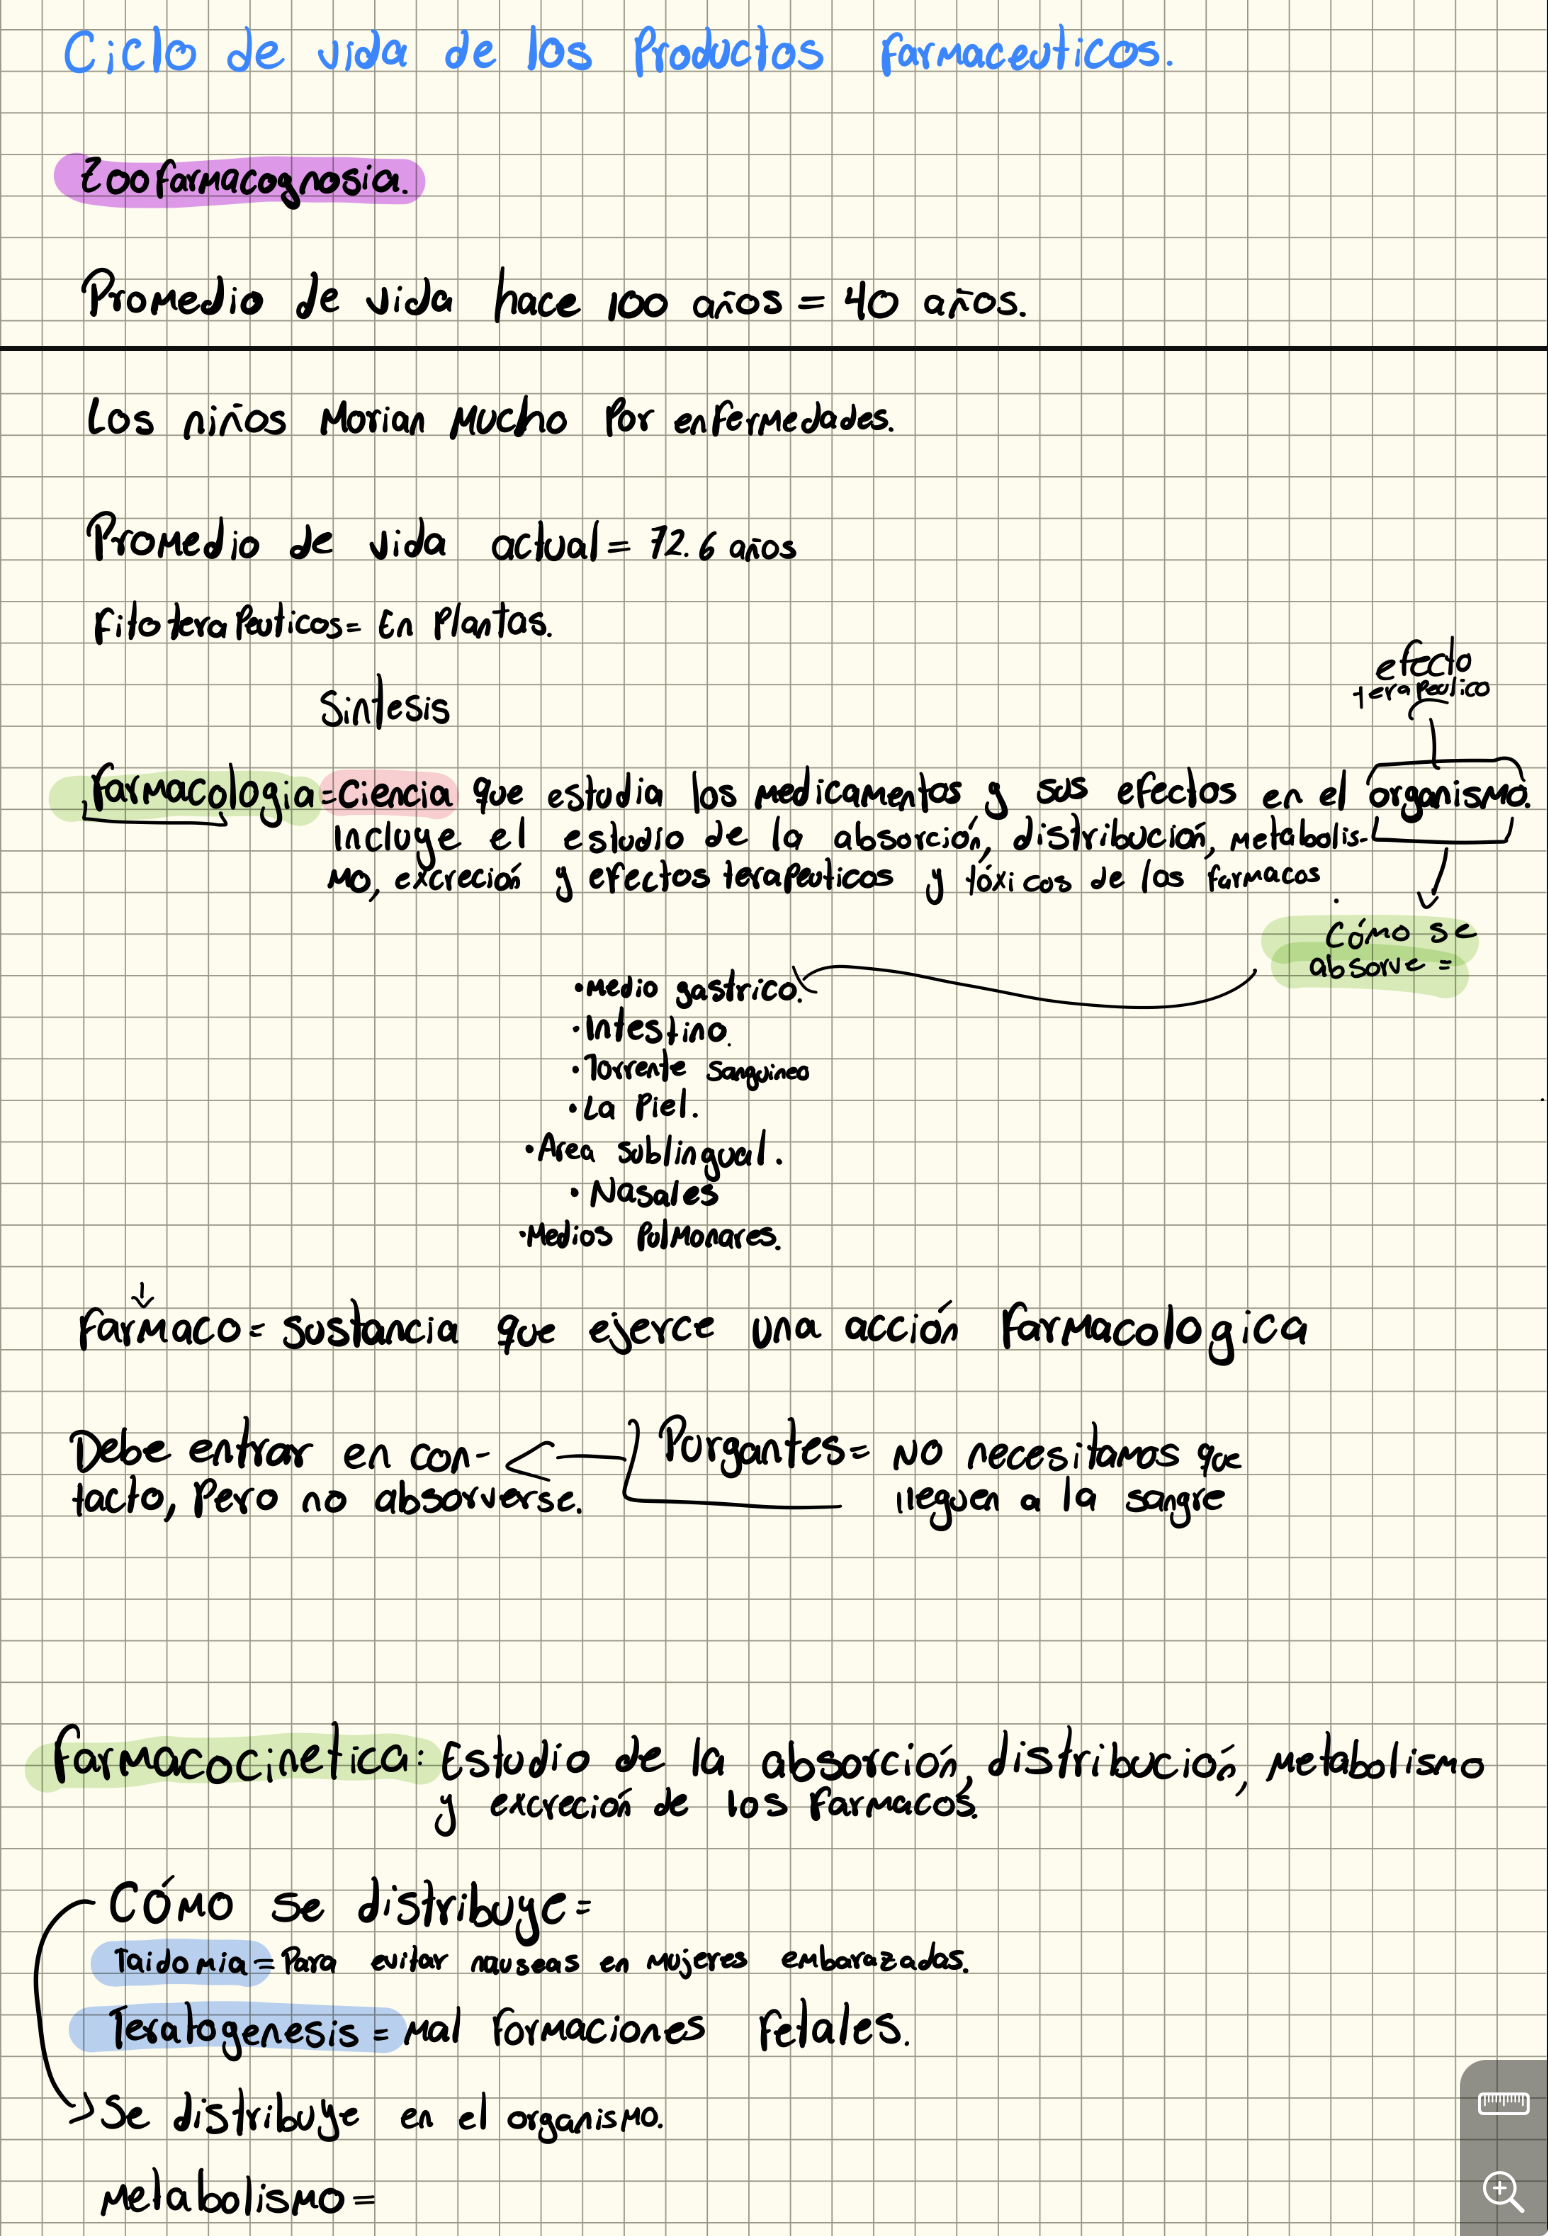 Ciclo de vida de los Productos farmaceuticos.
Zoofarmacognosia.
Promedio de vida hace 100 años = 40 años.
Los niños Morian Mucho Por enfermedades.
Promedio de vida actual = 72.6 años
Fitoterapeuticos = En Plantas.
Sintesis
efecto
terapeutico
farmacologia = Ciencia que estudia los medicamentos y sus efectos en el organismo.
Incluye el estudio de la absorción, distribución, metabolis-
mo, excreción y efectos terapeuticos y tóxicos de los farmacos.
Cómo se
absorve =
• Medio gastrico.
• Intestino.
• Torrente Sanguineo
• La Piel.
• Area sublingual.
• Nasales
• Medios Pulmonares.
Farmaco = sustancia que ejerce una acción farmacologica
Debe entrar en con-
tacto, Pero no absorverse.
Purgantes = No necesitamos que
lleguen a la sangre
farmacocinetica: Estudio de la absorción, distribución, Metabolismo
y excreción de los farmacos.
Cómo se distribuye =
Taidomia = Para evitar nauseas en mujeres embarazadas.
Teratogenesis = mal formaciones fetales.
Se distribuye en el organismo.
Metabolismo =